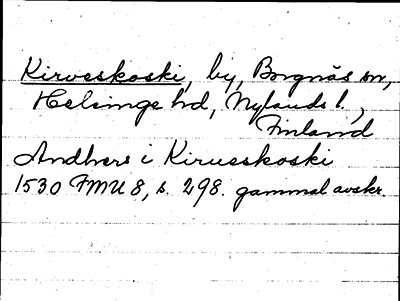 Kirveskoski, by, Borgnäs sn,
Helsinge hd, Nylands l.,
Finland
Andhers i Kirvesskoski
1530 FMU 8, s. 298. gammal avskr.